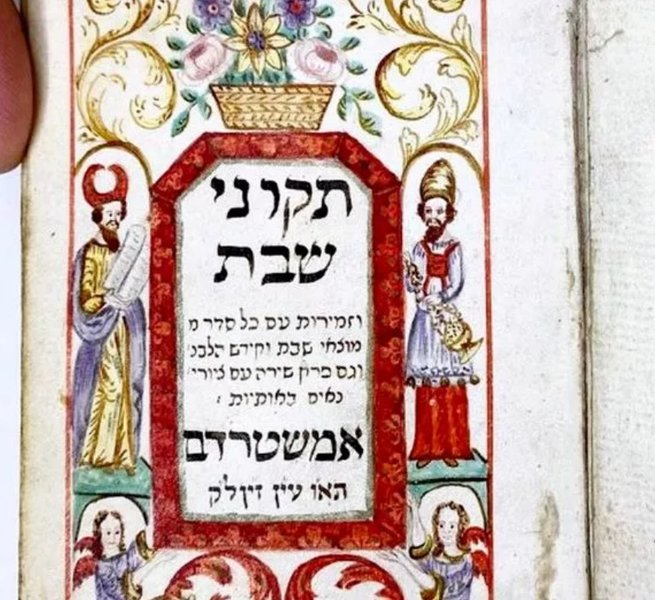 תקוני
שבת
וזמירות עם כל סדר מ
מוצאי שבת וקידש הלבנ׳
וגם פרק שירה עם ציורי׳
נאים באותיות :
אמשטרדם
האו עין זין לק